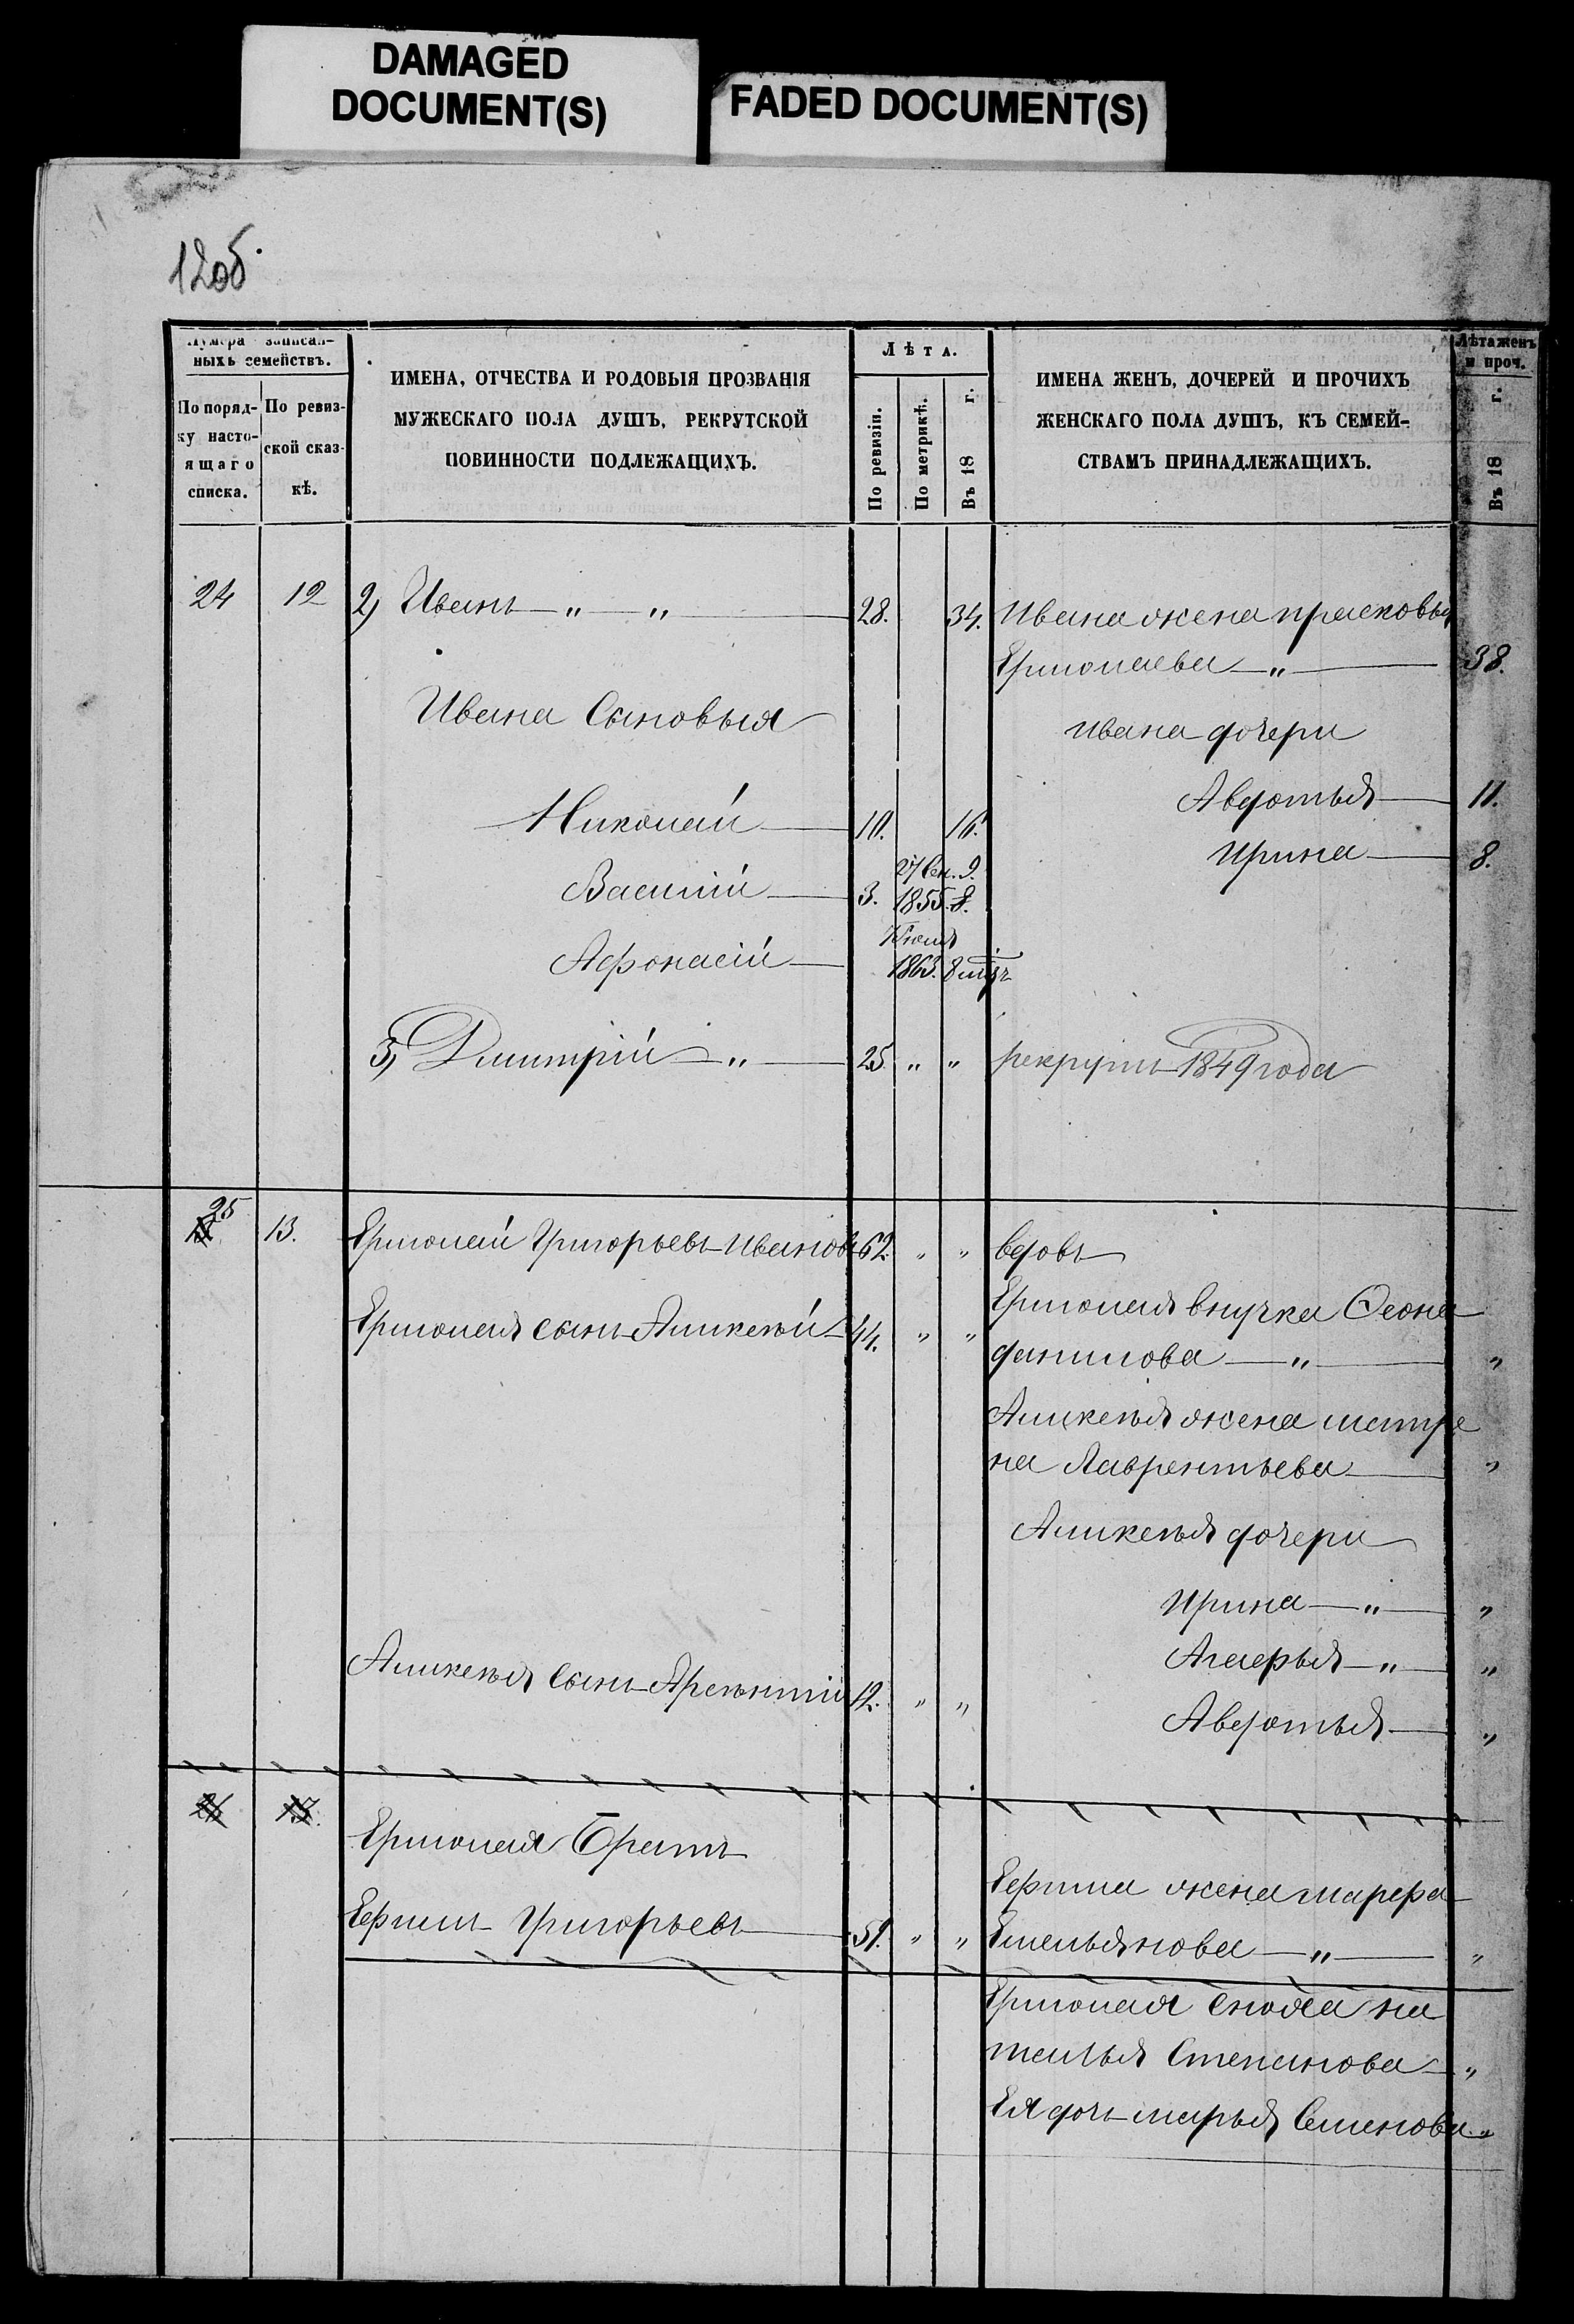 DAMAGED
DOCUMENT(S)
FADED DOCUMENT(S)
12об.
Нумера записан-
ныхъ семействъ.
По поряд-
ку насто-
ящаго
списка.
По ревиз-
ской сказ-
кѣ.
ИМЕНА, ОТЧЕСТВА И РОДОВЫЯ ПРОЗВАНІЯ
МУЖЕСКАГО ПОЛА ДУШЪ, РЕКРУТСКОЙ
ПОВИННОСТИ ПОДЛЕЖАЩИХЪ.
Лѣта.
По ревизіи.
По метрикѣ.
Въ 18 г.
ИМЕНА ЖЕНЪ, ДОЧЕРЕЙ И ПРОЧИХЪ
ЖЕНСКАГО ПОЛА ДУШЪ, КЪ СЕМЕЙ-
СТВАМЪ ПРИНАДЛЕЖАЩИХЪ.
Лѣта женъ
и проч.
Въ 18 г.
24 12 2) Иванъ — „ — „ — 28. 34. Ивана жена прасковья
Ермолаева — „ — 38.
Ивана Сыновья
ивана дочери
Авдотья — 11.
Николай — 10. 16.
Ирина — 8.
27 Сен. 9.
Василій — 3. 1855. 8.
Афонасій — 1863. 8 мѣс
3) Дмитрій — „ — 25. „ „ рекрутъ 1849 года
25 13. Ермолай Григорьевъ Ивановъ 62. „ „ вдовъ
Ермолая внучка Ѳеона
Ермолая сынъ Аликсѣй 44. „ „
данилова — „ — „
Аликсѣя жена матре
на Лаврентьева — „
Аликсѣя дочери
Ирина — „ — „
Агафья — „ — „
Аликсѣя сынъ Арсѣнтій 12. „ „
Авдотья — „
26 13.
Ермолая Братъ
Ефима жена марфа
Ефимъ Григорьевъ — 59. „ „ Емельянова — „ — „
Ермолая сноха на
талья Степанова — „
Ея дочь марья Семенова „